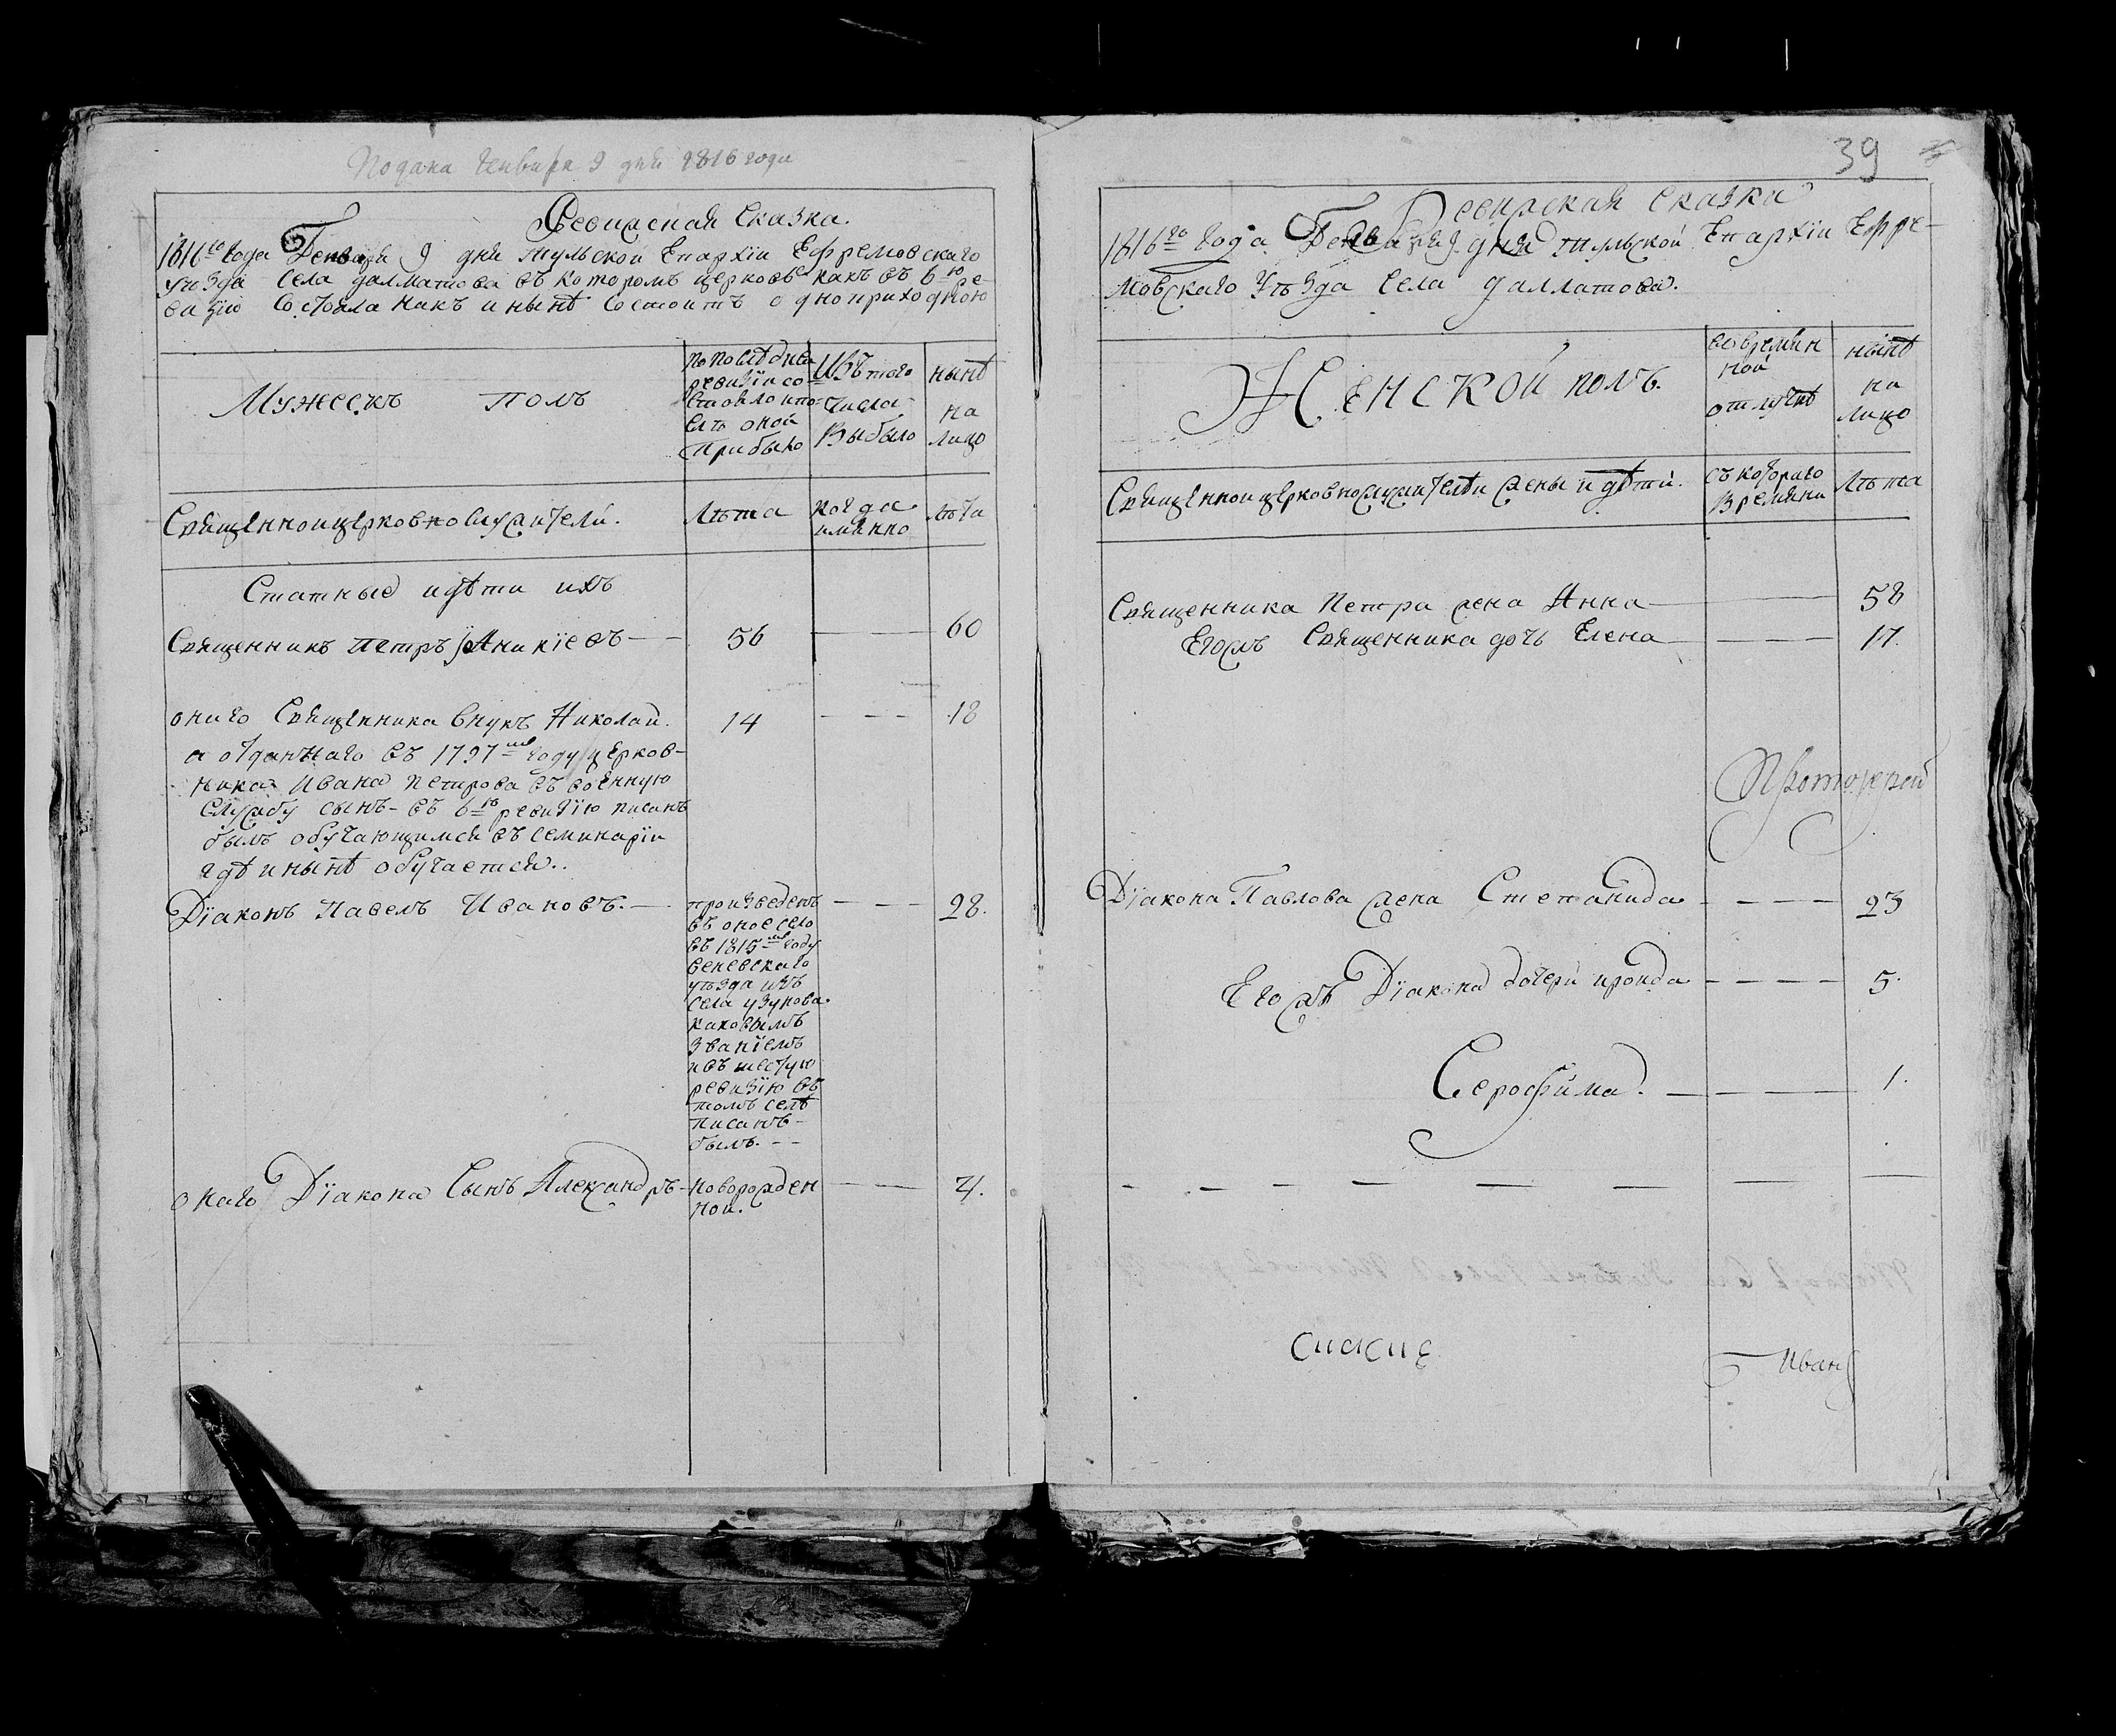 Подана Генваря 9 дня 1816 года
Ревизская Сказка.
1816го года Генваря 9 дня Тульской Епархіи Ефремовскаго
уѣзда села далматова въ которомъ церковь какъ въ 6ю ре-
визію Состояла такъ и нынѣ Состоитъ одноприходною
Мужескъ полъ
по последней
ревизіи со-
стояло и по-
слѣ оной
прибыло
Изъ того
числа
Выбыло
нынѣ
на
лицо
Священноицерковнослужители.
Лѣта
когда
имянно
Лѣта
Статные и дѣти ихъ
Священникъ Петръ Аникіевъ — 56 — 60
онаго Священника Внукъ Николай. 14 — 18
а отданнаго въ 1797мъ году церков-
ника Ивана Петрова въ военную
службу сынъ - въ 6ю ревизію писанъ
былъ обучающимся въ семинаріи
гдѣ и нынѣ обучается.
Діаконъ Павелъ Ивановъ. — произведенъ — 28.
въ оное село
въ 1815мъ году
веневскаго
уѣзда изъ
села узунова
каковымъ
званіемъ
и въ шестую
ревизію въ
томъ селѣ
писанъ
былъ. - -
онаго Діакона Сынъ Александръ - новорожден — 4.
ной.
39
Ревизская сказка
1816го года Генваря 9 дня тульской Епархіи Ефре-
мовскаго Уѣзда Села далматова.
Женской полъ.
во времян
ной
отлучкѣ
нынѣ
на
лицо
Священноицерковнослужителей жены и дѣти.
съ котораго
Времяни
Лѣта
Священника Петра жена Анна — 58
Егожъ Священника дочь Елена — 17.
Протоіерей
Діакона Павлова жена Степанида - — 23
Егожъ Діакона дочери ироида - — 5.
Серафима. — 1.
Иванъ